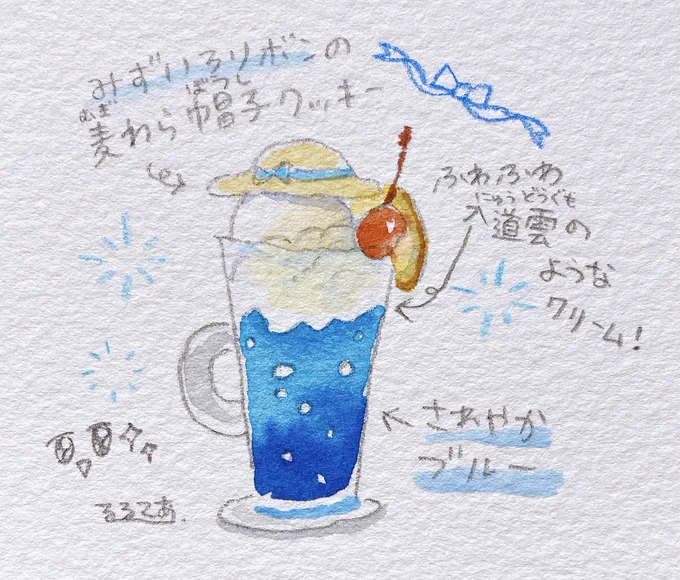 みずいろリボンの
むぎ
ぼうし
麦わら帽子クッキー
ふわふわ
にゅうどうぐも
入道雲の
ような
クリーム!
さわやか
ブルー
るるてあ.